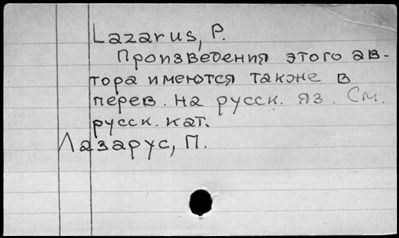 Lazarus, P.
Произведения этого ав-
тора имеются также в
перев. на русск. яз. См.
русск. кат.
Лазарус, П.